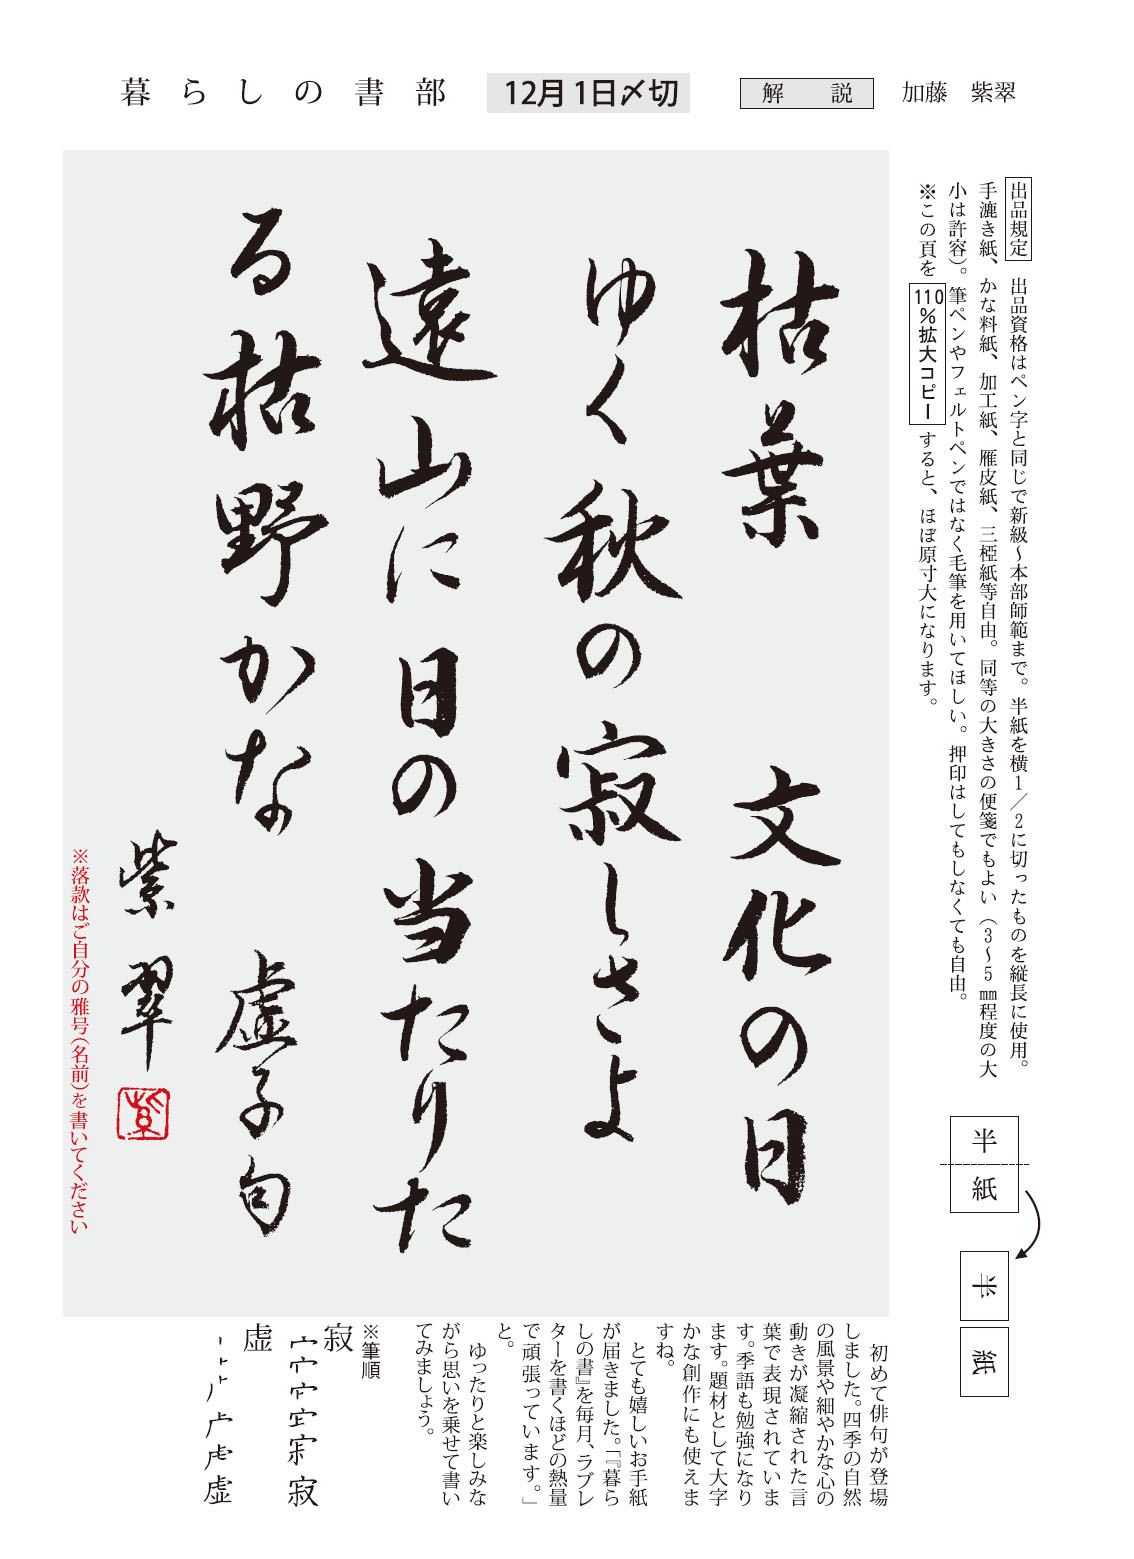 暮らしの書部
12月1日〆切
解説
加藤 紫翠
出品規定 出品資格はペン字と同じで新級～本部師範まで。半紙を横1／2に切ったものを縦長に使用。
手漉き紙、かな料紙、加工紙、雁皮紙、三椏紙等自由。同等の大きさの便箋でもよい（3～5㎜程度の大
小は許容）。筆ペンやフェルトペンではなく毛筆を用いてほしい。押印はしてもしなくても自由。
※この頁を110％拡大コピーすると、ほぼ原寸大になります。
半紙
半
紙
枯葉 文化の日
ゆく秋の寂しさよ
遠山に日の当たりた
る枯野かな 虚子句
紫翠
※落款はご自分の雅号（名前）を書いてください
初めて俳句が登場
しました。四季の自然
の風景や細やかな心の
動きが凝縮された言
葉で表現されていま
す。季語も勉強になり
ます。題材として大字
かな創作にも使えま
すね。
とても嬉しいお手紙
が届きました。「『暮ら
しの書』を毎月、ラブレ
ターを書くほどの熱量
で頑張っています。」
と。
ゆったりと楽しみな
がら思いを乗せて書い
てみましょう。
※筆順
寂
寂
虚
虚